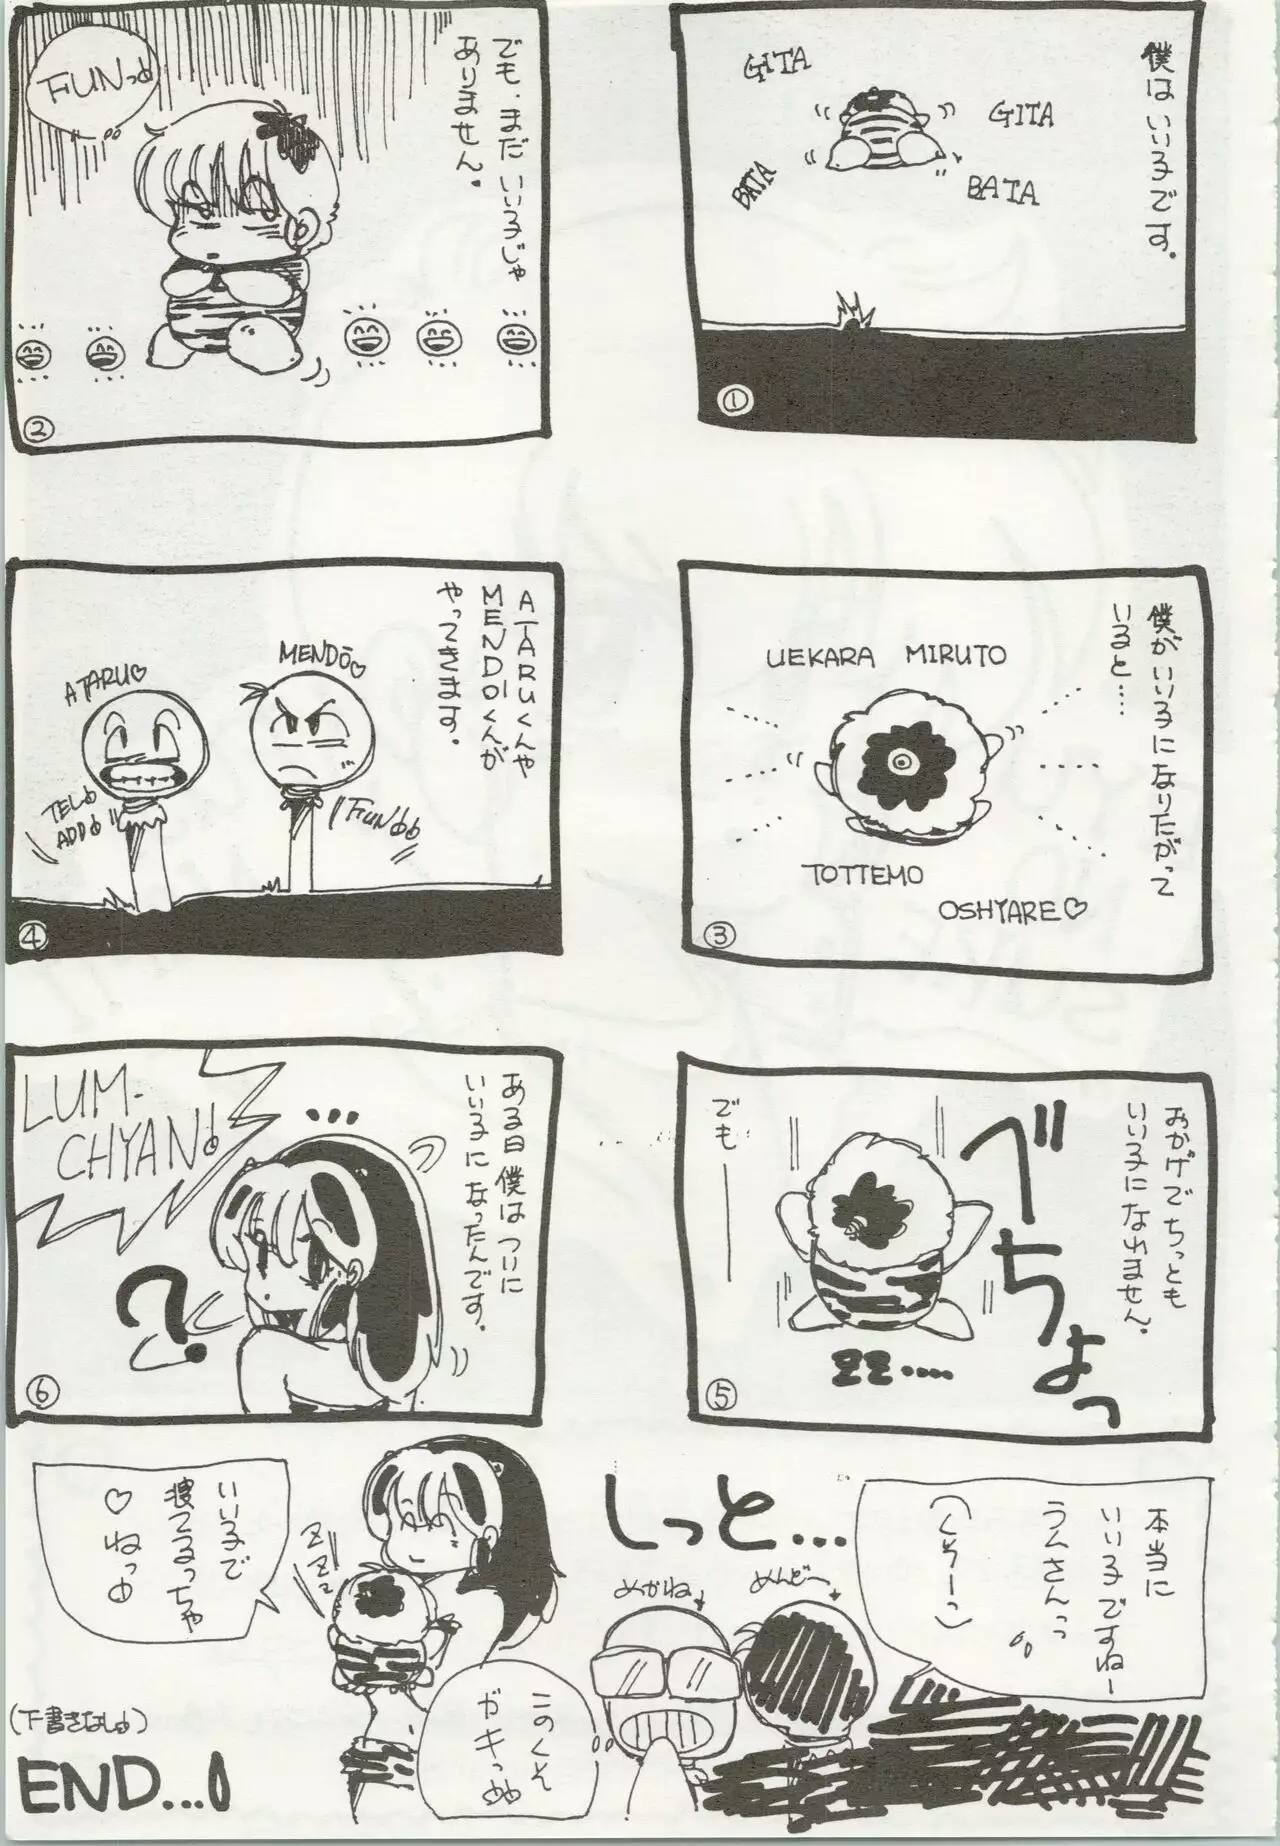 僕はいい子です。
GITA
GITA
BATA
BATA
①
でも、まだいい子じゃ
ありません。
FUNっ
②
僕がいい子になりたがって
いると…
UEKARA MIRUTO
TOTTEMO
OSHYARE♡
③
ATARUくんや
MENDOくんが
やってきます。
ATARU♡
MENDŌ♡
TEL
ADD
FUN
④
おかげでちっとも
いい子になれません。
でも——
べちょっ
ZZ....
⑤
ある日僕はついに
いい子になったんです。
LUM-
CHYAN
...
?
⑥
本当に
いい子ですねー
ラムさんっ
(くそーっ)
しっと...
めんどー
めがね
このくそ
ガキっ
いい子で
寝てるっちゃ
♡ねっ
ZZZ
(下書きなし)
END...